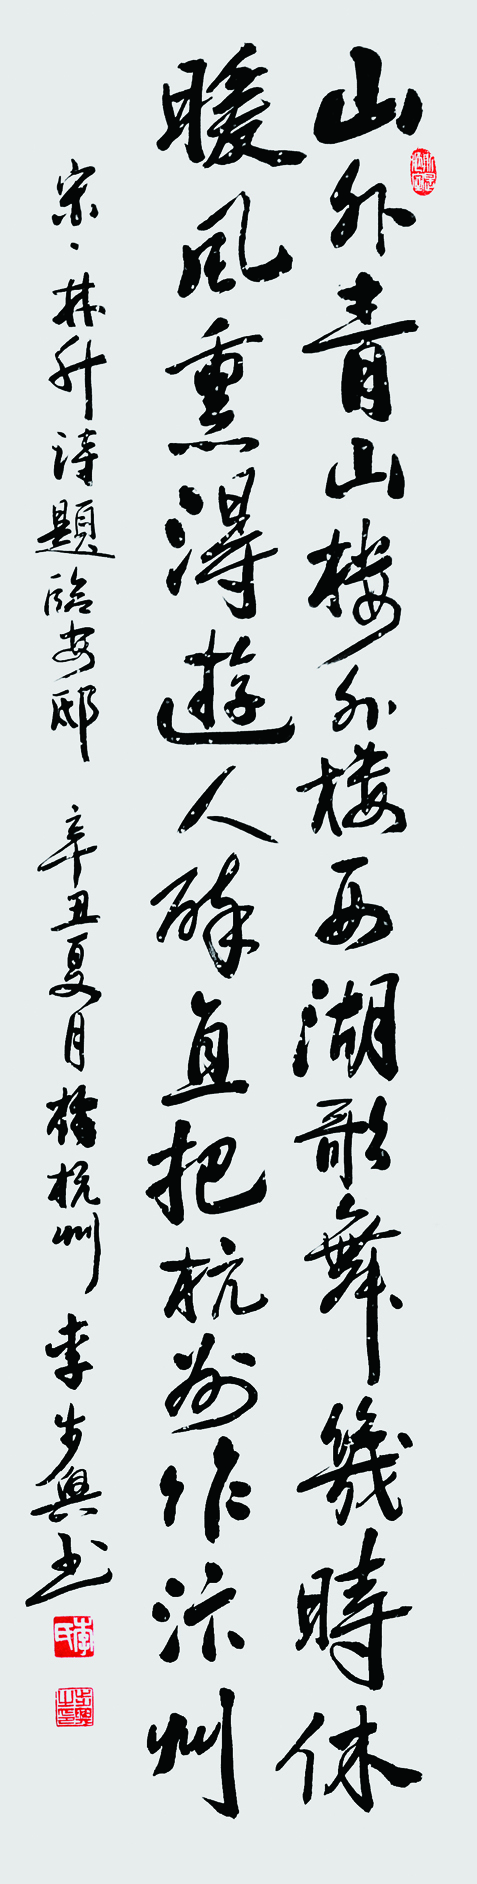 山外青山楼外楼西湖歌舞几時休
暖风熏得遊人醉直把杭州作汴州
宋、林升诗題臨安邸 辛丑夏月於杭州 李步興书
李氏